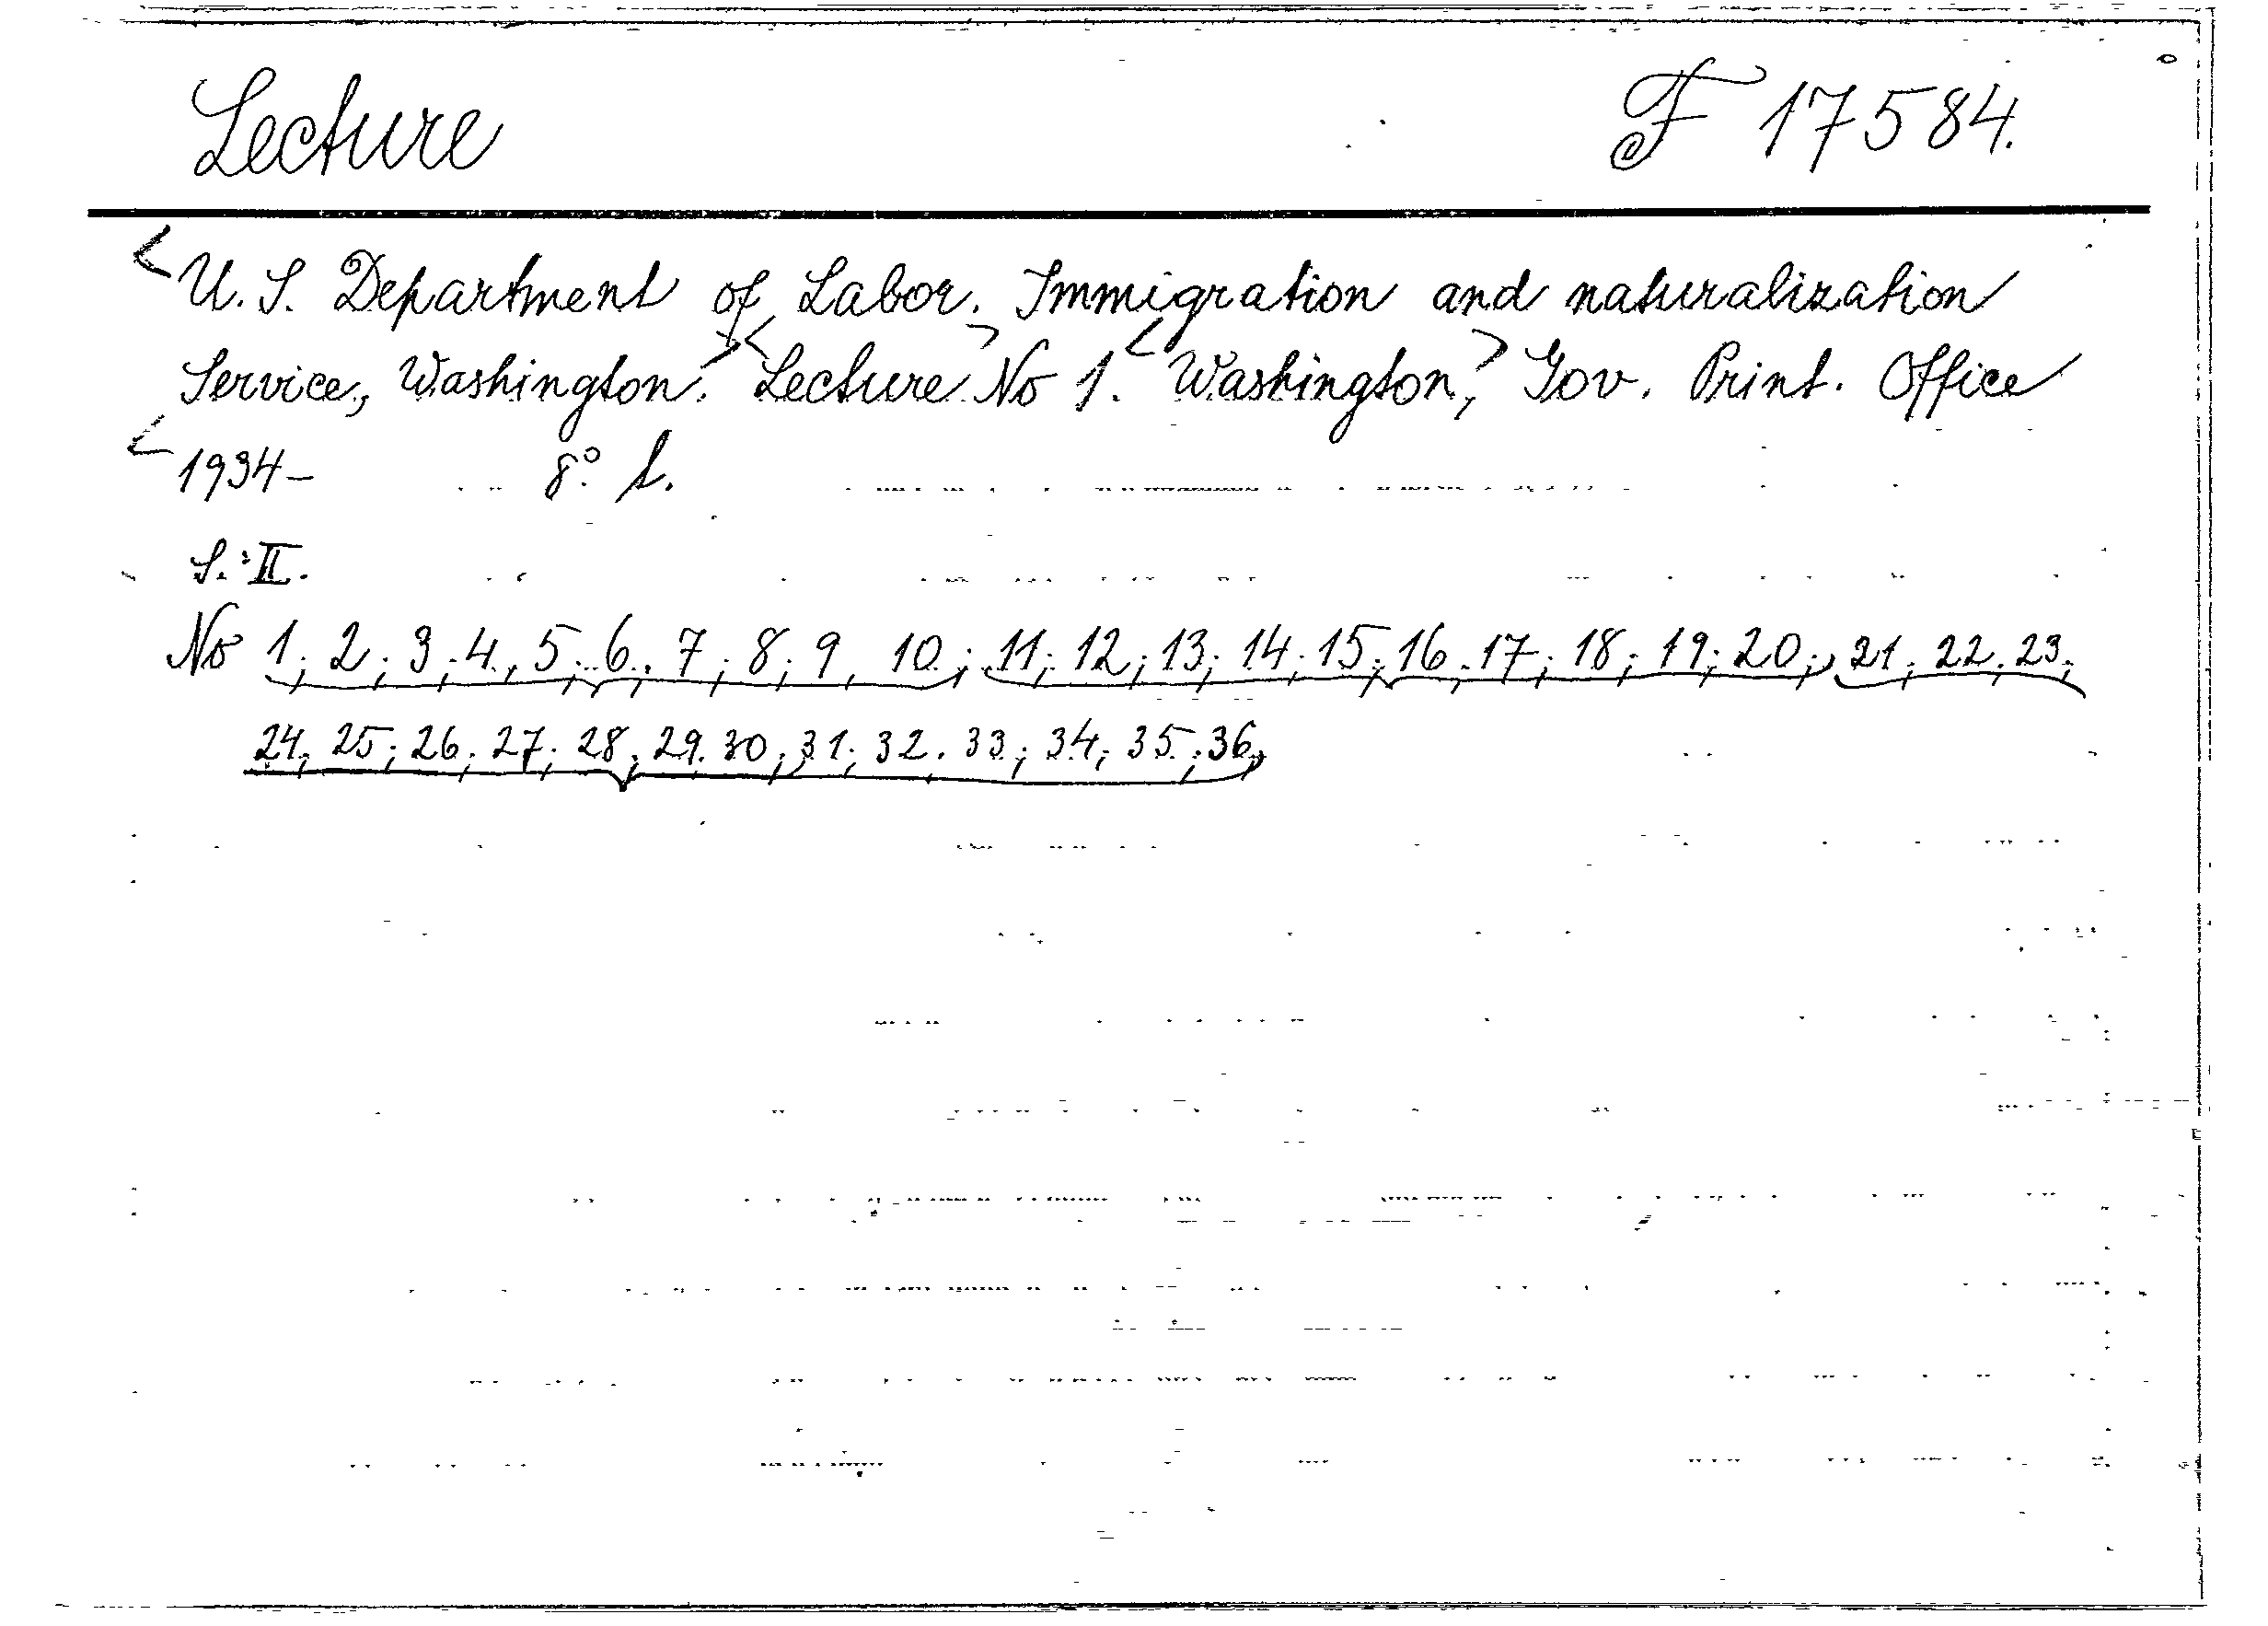 Lecture F 17584.
<U. S. Department of Labor. Immigration and naturalization
Service, Washington.> <Lecture> No 1. <Washington,> Gov. Print. Office
<1934- 8° t.
S. II.
No 1; 2; 3; 4, 5; 6. 7; 8; 9, 10; 11; 12; 13; 14; 15; 16. 17; 18; 19; 20; 21; 22. 23;
24; 25; 26. 27. 28; 29. 30; 31; 32. 33; 34; 35; 36,